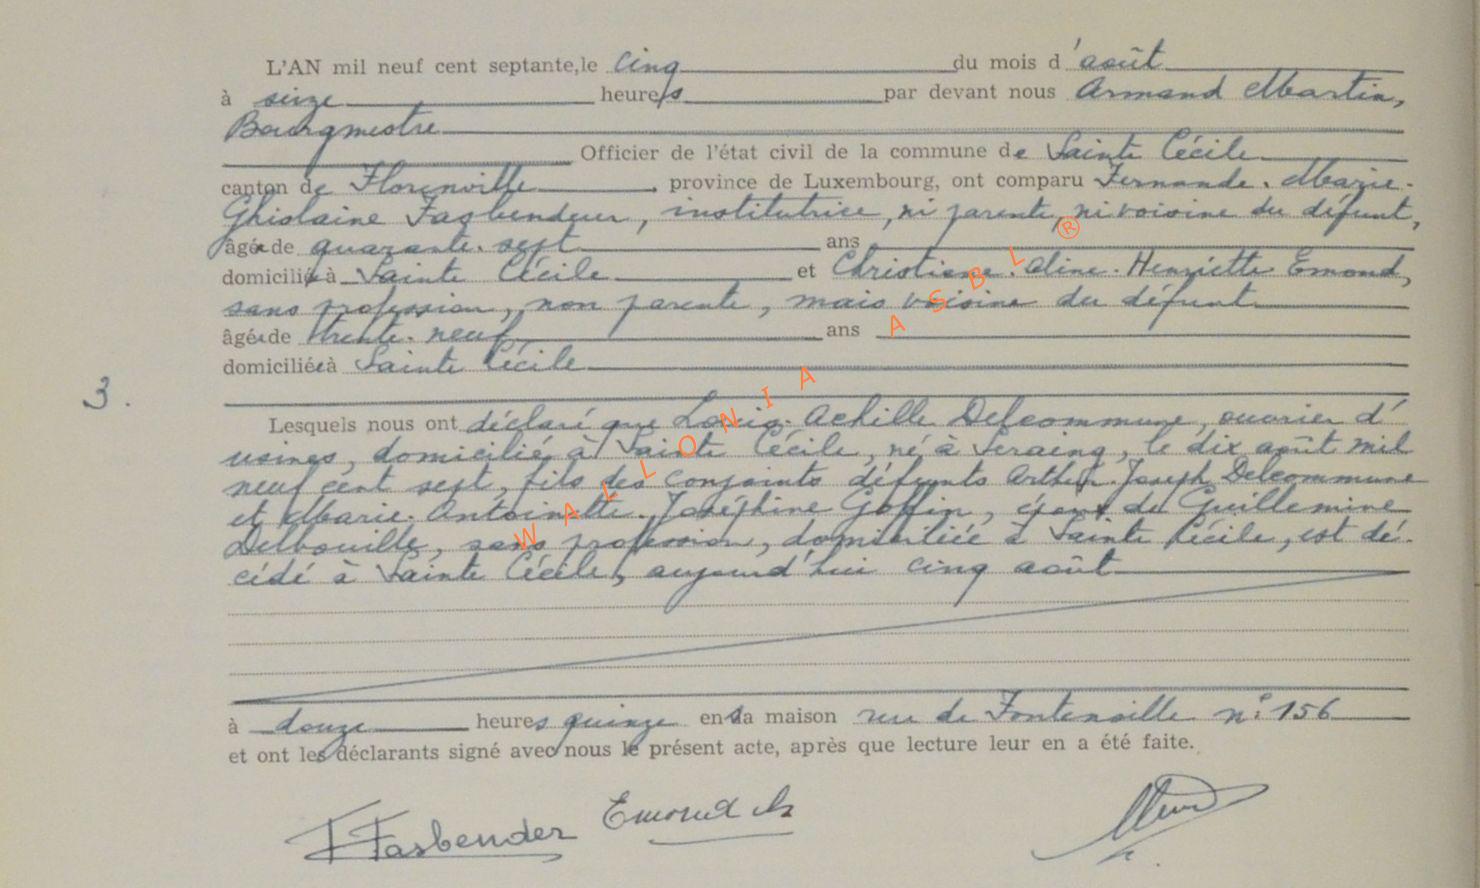 L'AN mil neuf cent septante, le cinq du mois d'août
à seize heures par devant nous Armand Martin,
Bourgmestre
Officier de l'état civil de la commune de Sainte Cécile
canton de Florenville, province de Luxembourg, ont comparu Fernande-Marie-
Ghislaine Fasbender, institutrice, ni parente, ni voisine du défunt,
âgée de quarante-sept ans
domiciliée à Sainte Cécile et Christiane-Aline-Henriette Emond,
sans profession, non parente, mais voisine du défunt
âgée de trente-neuf ans
domiciliée à Sainte Cécile
3.
Lesquels nous ont déclaré que Louis-Achille Delcommune, ouvrier d'
usines, domicilié à Sainte Cécile, né à Seraing, le dix août mil
neuf cent sept, fils des conjoints défunts Arthur-Joseph Delcommune
et Marie-Antoinette-Joséphine Goffin, époux de Guillemine
Delbouille, sans profession, domiciliée à Sainte Cécile, est dé-
cédé à Sainte Cécile, aujourd'hui cinq août
à douze heures quinze en sa maison rue de Fontenoille n° 156
et ont les déclarants signé avec nous le présent acte, après que lecture leur en a été faite.
F Fasbender Emond Ch
WALLONIA ASBL ®